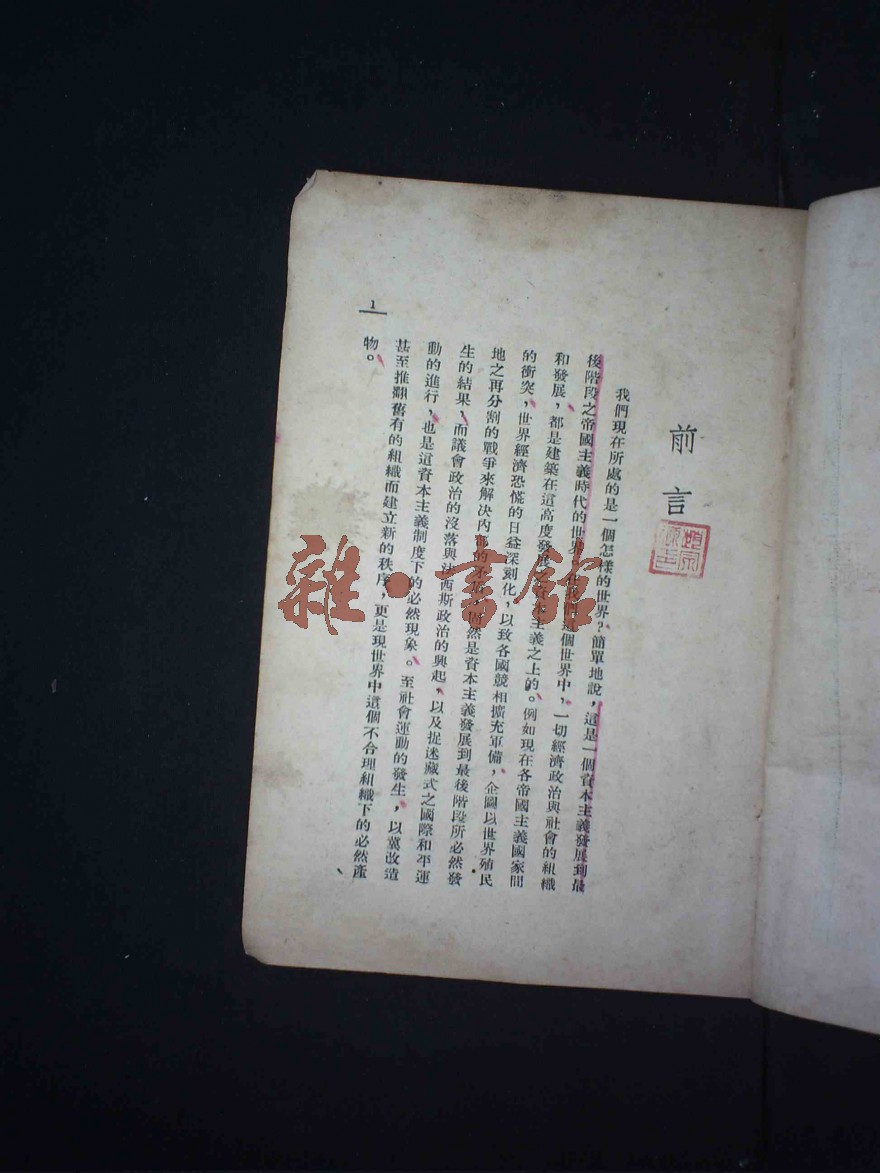 前言
我們現在所處的是一個怎樣的世界？簡單地說，這是一個資本主義發展到最
後階段之帝國主義時代的世界。在我們這個世界中，一切經濟政治與社會的組織
和發展，都是建築在這高度發展之資本主義之上的。例如現在各帝國主義國家間
的衝突，世界經濟恐慌的日益深刻化，以致各國競相擴充軍備，企圖以世界殖民
地之再分割的戰爭來解決內部的矛盾，固然是資本主義發展到最後階段所必然發
生的結果，而議會政治的沒落與法西斯政治的興起，以及捉迷藏式之國際和平運
動的進行，也是這資本主義制度下的必然現象。至社會運動的發生，以冀改造
甚至推翻舊有的組織而建立新的秩序，更是現世界中這個不合理組織下的必然產
物。
1
雜·書館